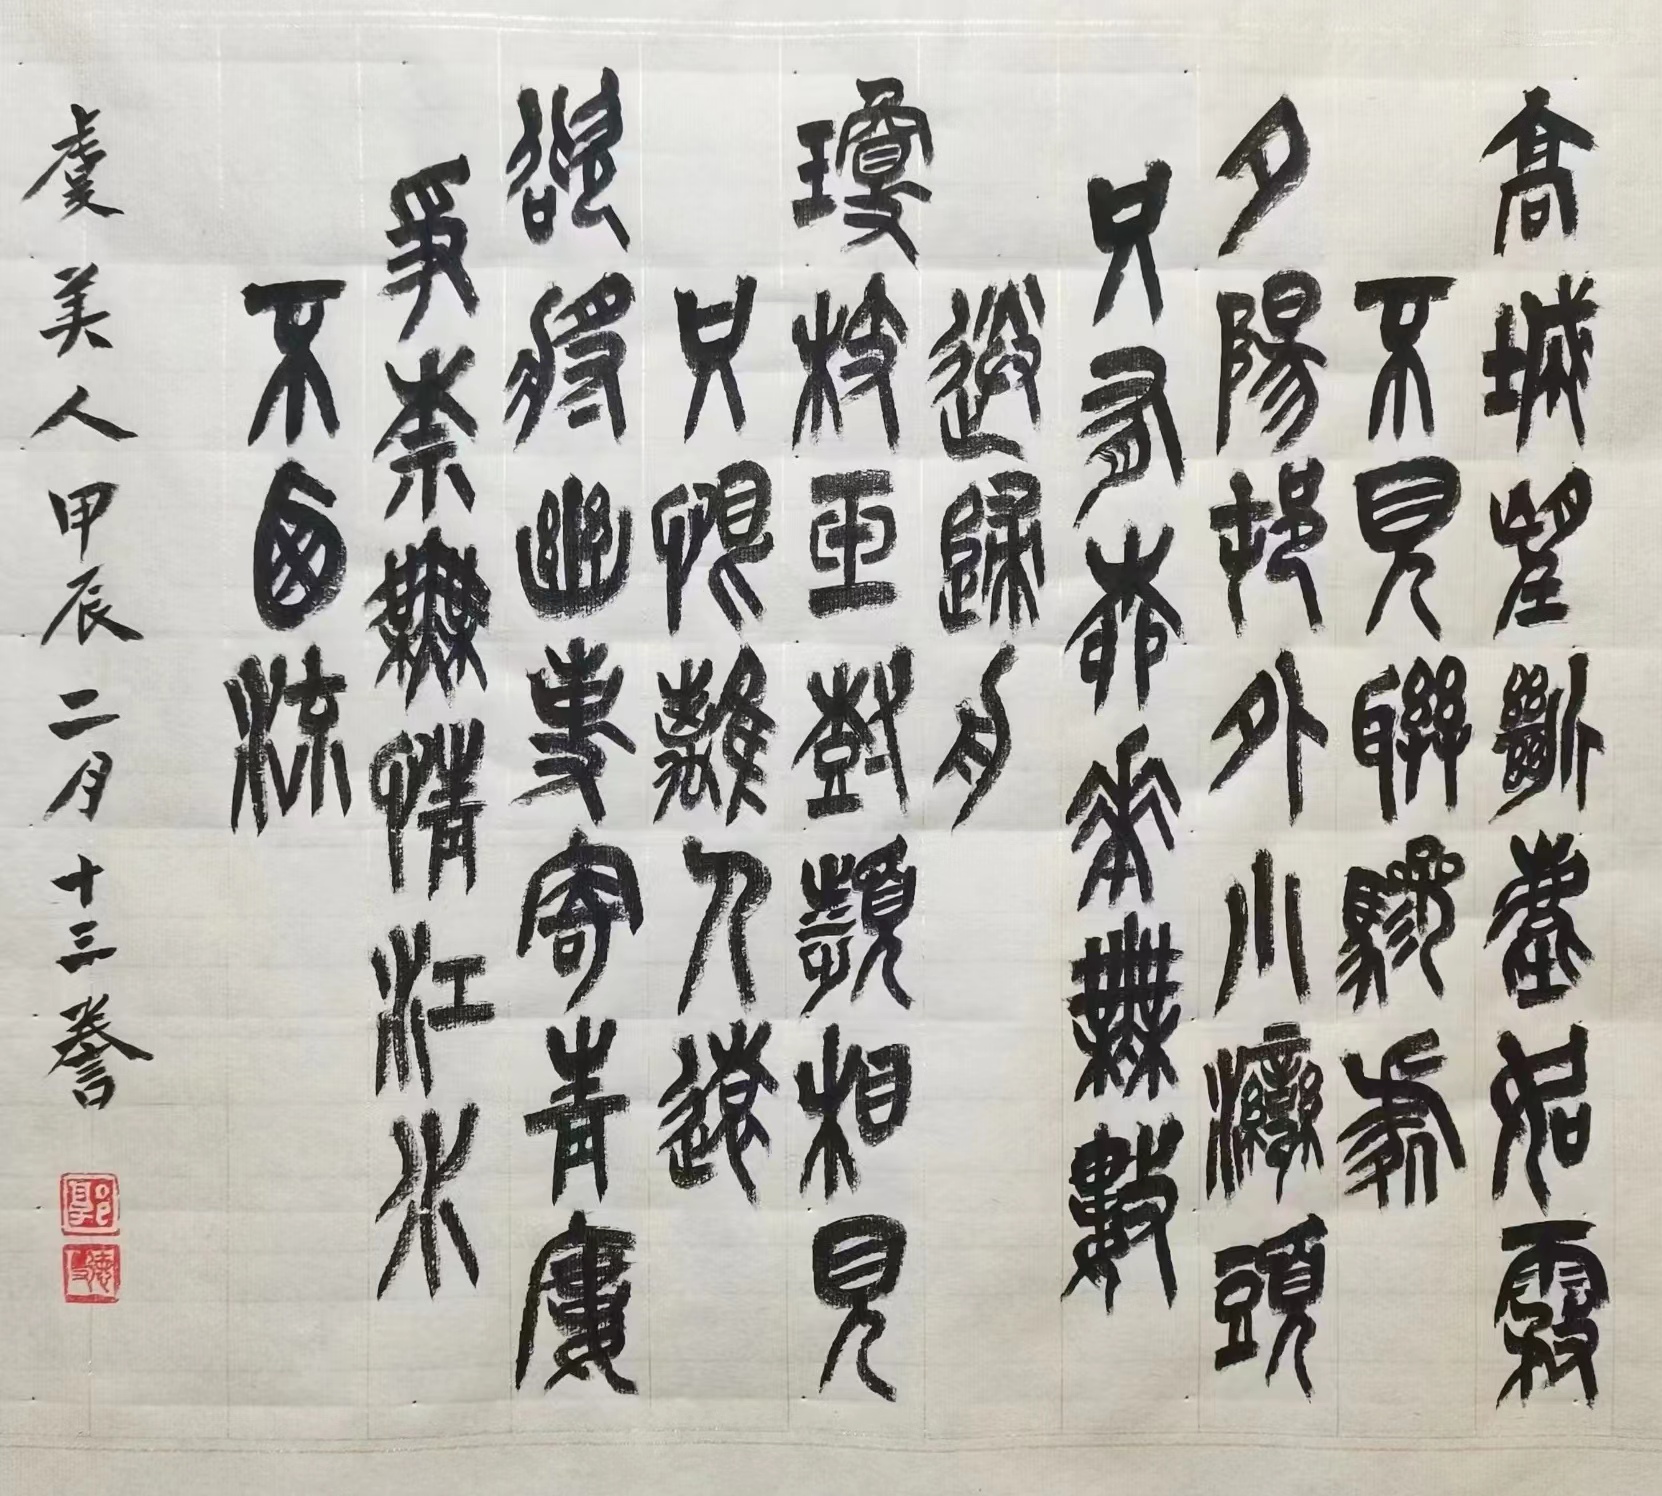 高城望斷塵如霧
不見聯驂處
夕陽邨外小灣頭
只有柳花無數
送歸舟
瓊枝玉樹頻相見
只恨離人遠
欲將幽事寄青廔
爭奈無情江水
不西流
虞美人甲辰二月十三誊
郭